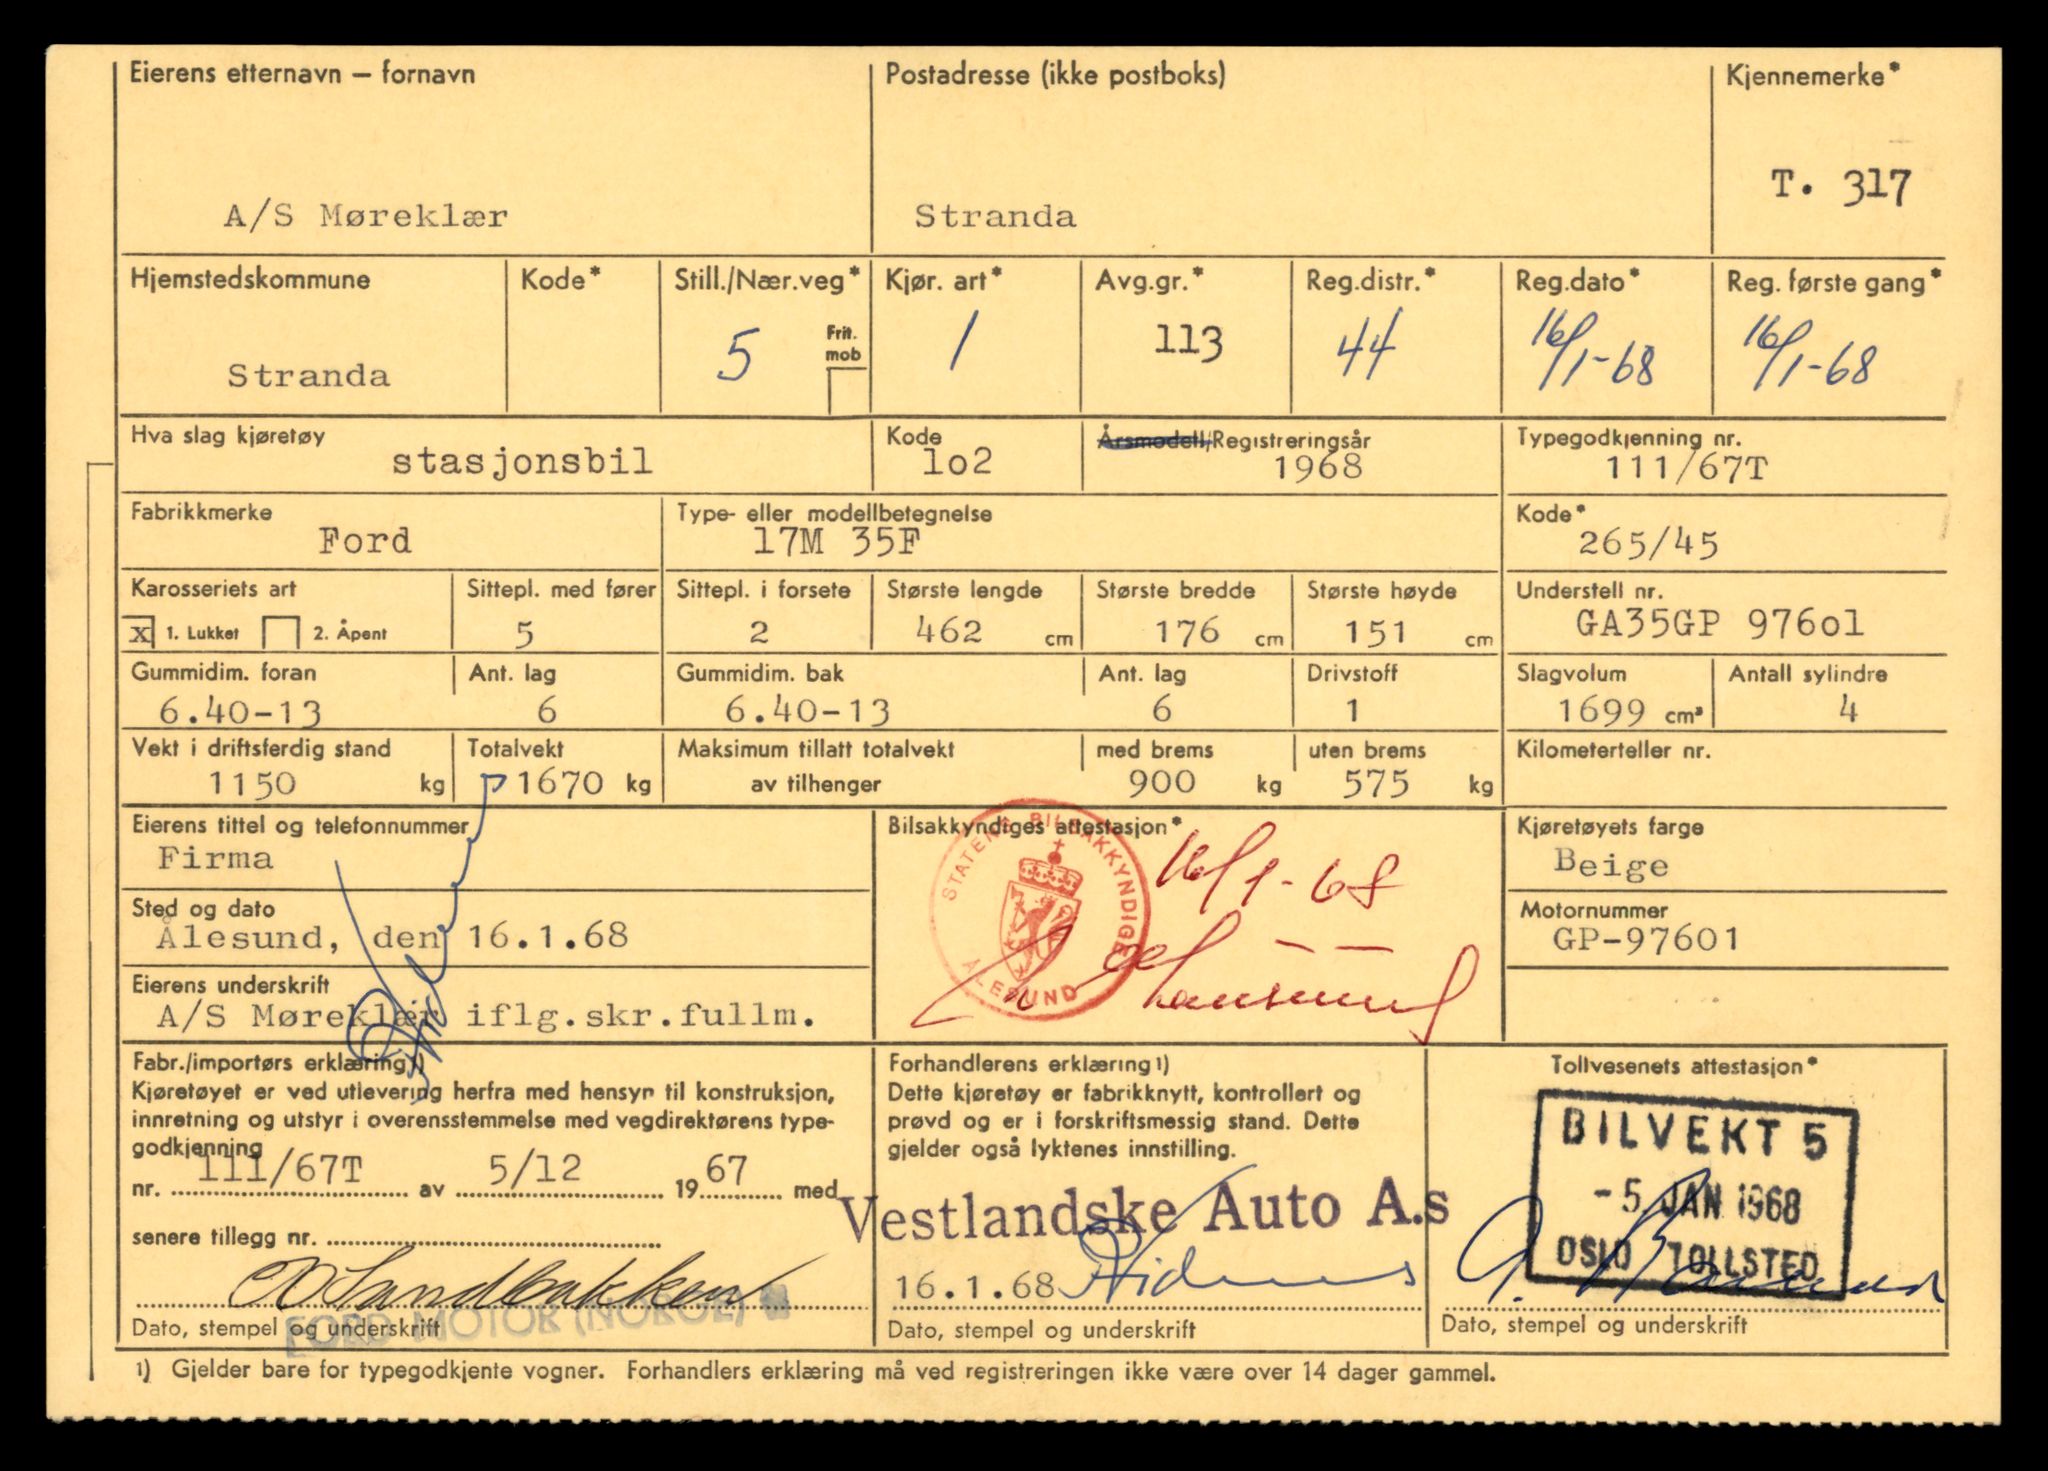 Eierens etternavn – fornavn Postadresse (ikke postboks) Kjennemerke*
A/S Møreklær Stranda T. 317
Hjemstedskommune Kode* Still./Nær.veg* Kjør. art* Avg.gr.* Reg.distr.* Reg.dato* Reg. første gang*
Frit. mob
Stranda 5 1 113 44 16/1-68 16/1-68
Hva slag kjøretøy Kode Årsmodell/Registreringsår Typegodkjenning nr.
stasjonsbil lo2 1968 111/67T
Fabrikkmerke Type- eller modellbetegnelse Kode*
Ford 17M 35F 265/45
Karosseriets art Sittepl. med fører Sittepl. i forsete Største lengde Største bredde Største høyde Understell nr.
x 1. Lukket 2. Åpent 5 2 462 cm 176 cm 151 cm GA35GP 976ol
Gummidim. foran Ant. lag Gummidim. bak Ant. lag Drivstoff Slagvolum Antall sylindre
6.40-13 6 6.40-13 6 1 1699 cm³ 4
Vekt i driftsferdig stand Totalvekt Maksimum tillatt totalvekt med brems uten brems Kilometerteller nr.
1150 kg 1670 kg av tilhenger 900 kg 575 kg
Eierens tittel og telefonnummer Bilsakkyndiges attestasjon* Kjøretøyets farge
Firma Beige
STATENS BILSAKKYNDIGE ÅLESUND
16/1-68
Sted og dato Motornummer
Ålesund, den 16.1.68 GP-97601
Eierens underskrift
A/S Møreklær iflg.skr.fullm.
Fabr./importørs erklæring 1) Forhandlerens erklæring 1) Tollvesenets attestasjon*
Kjøretøyet er ved utlevering herfra med hensyn til konstruksjon,
innretning og utstyr i overensstemmelse med vegdirektørens type-
godkjenning
nr. 111/67T av 5/12 1967 med
senere tillegg nr.
Sandbakken
FORD MOTOR (NORGE)
Dato, stempel og underskrift
Dette kjøretøy er fabrikknytt, kontrollert og
prøvd og er i forskriftsmessig stand. Dette
gjelder også lyktenes innstilling.
Vestlandske Auto A.s
16.1.68
Dato, stempel og underskrift
BILVEKT 5
-5. JAN 1968
OSLO TOLLSTED
Dato, stempel og underskrift
1) Gjelder bare for typegodkjente vogner. Forhandlers erklæring må ved registreringen ikke være over 14 dager gammel.